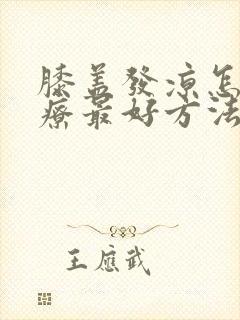 膝盖發凉怎
療最好方法
王應武